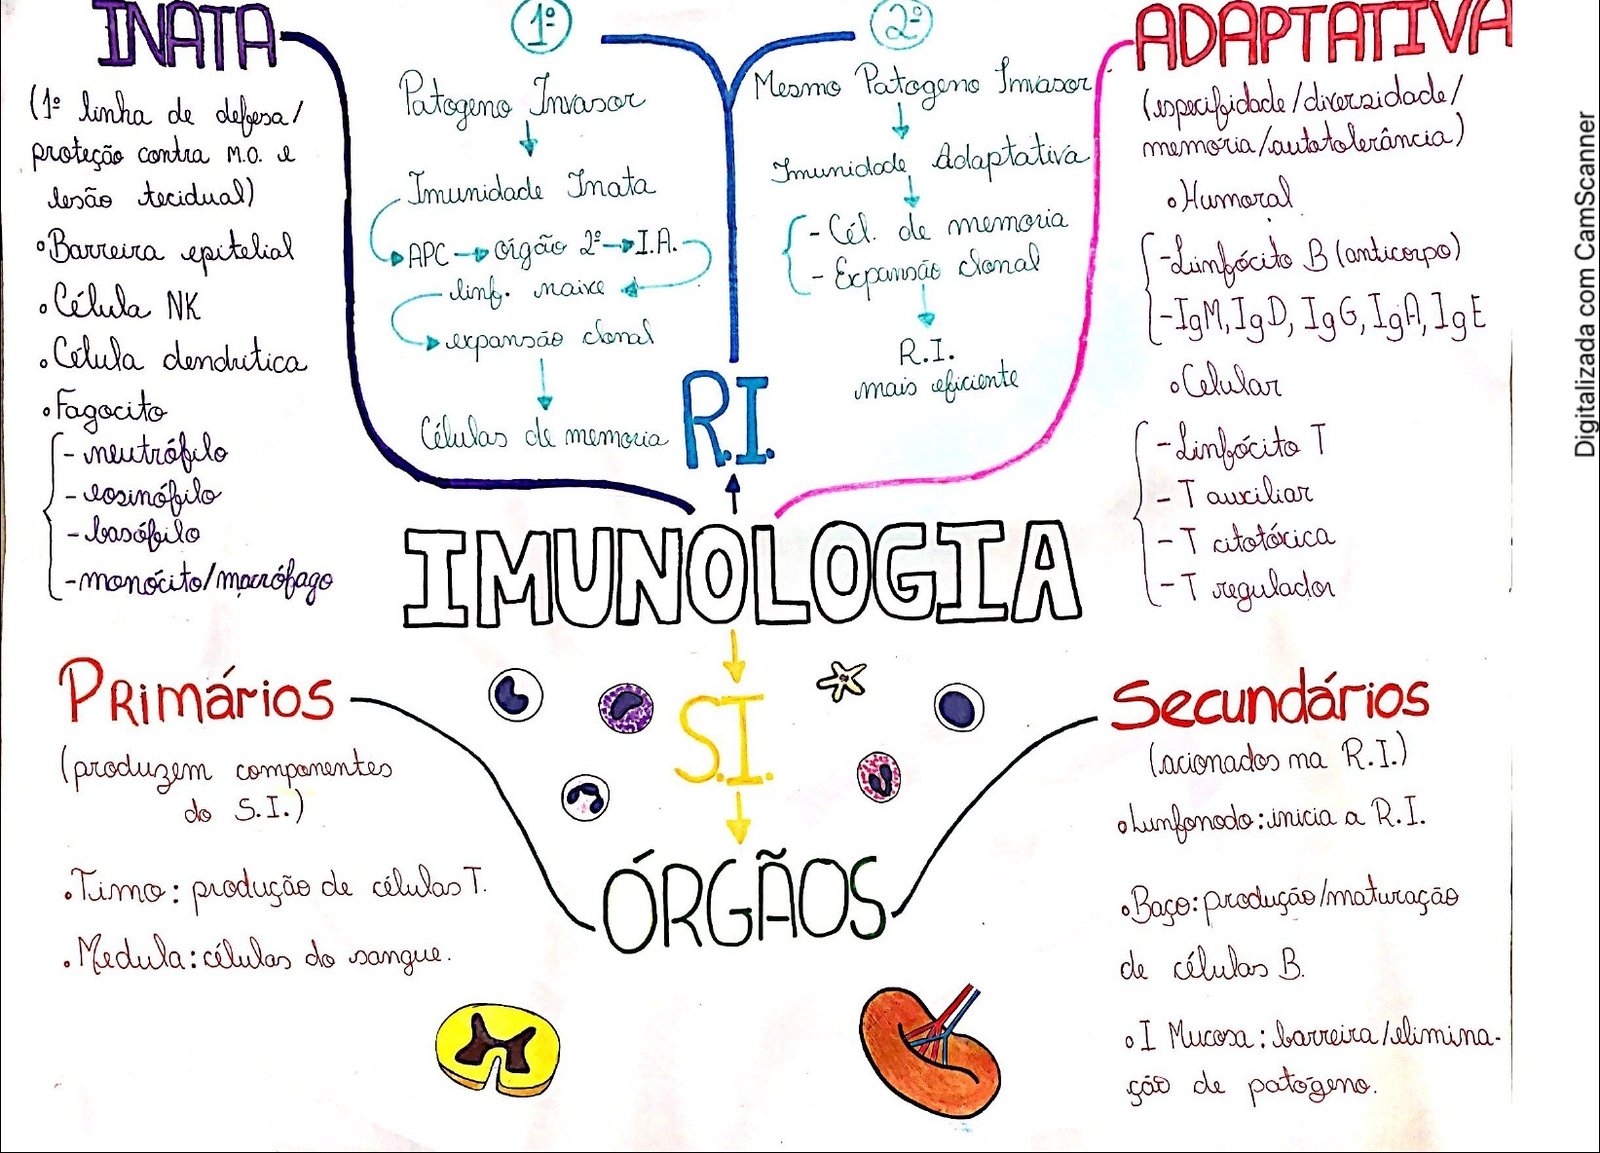 INATA
(1º linha de defesa/
proteção contra M.O. e
lesão tecidual)
Barreira epitelial
Célula NK
Célula dendrítica
Fagocito
- neutrófilo
- eosinófilo
- basófilo
- monócito/macrófago
1º
Patogeno Invasor
Imunidade Inata
APC órgão 2º I.A.
linf. naive
expansão clonal
Células de memoria
R.I.
2º
Mesmo Patogeno Invasor
Imunidade Adaptativa
- Cél. de memoria
- Expansão clonal
R.I.
mais eficiente
ADAPTATIVA
(especifidade/diversidade/
memoria/autotolerância)
Humoral
- Linfócito B (anticorpo)
- IgM, IgD, IgG, IgA, IgE
Celular
- Linfócito T
- T auxiliar
- T citotóxica
- T regulador
IMUNOLOGIA
S.I.
ÓRGÃOS
Primários
(produzem componentes
do S.I.)
Timo: produção de células T.
Medula: células do sangue.
Secundários
(acionados na R.I.)
Linfonodo: inicia a R.I.
Baço: produção/maturação
de células B.
I Mucosa: barreira/elimina-
ção de patógeno.
Digitalizada com CamScanner